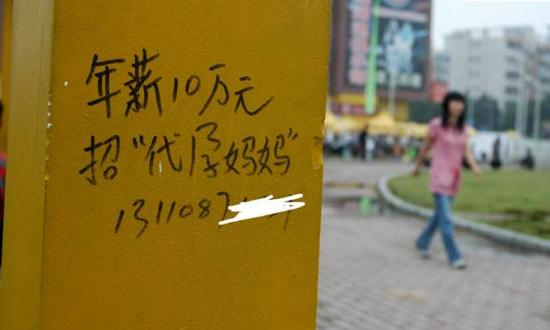 年薪10万元
招"代孕妈妈"
1311087